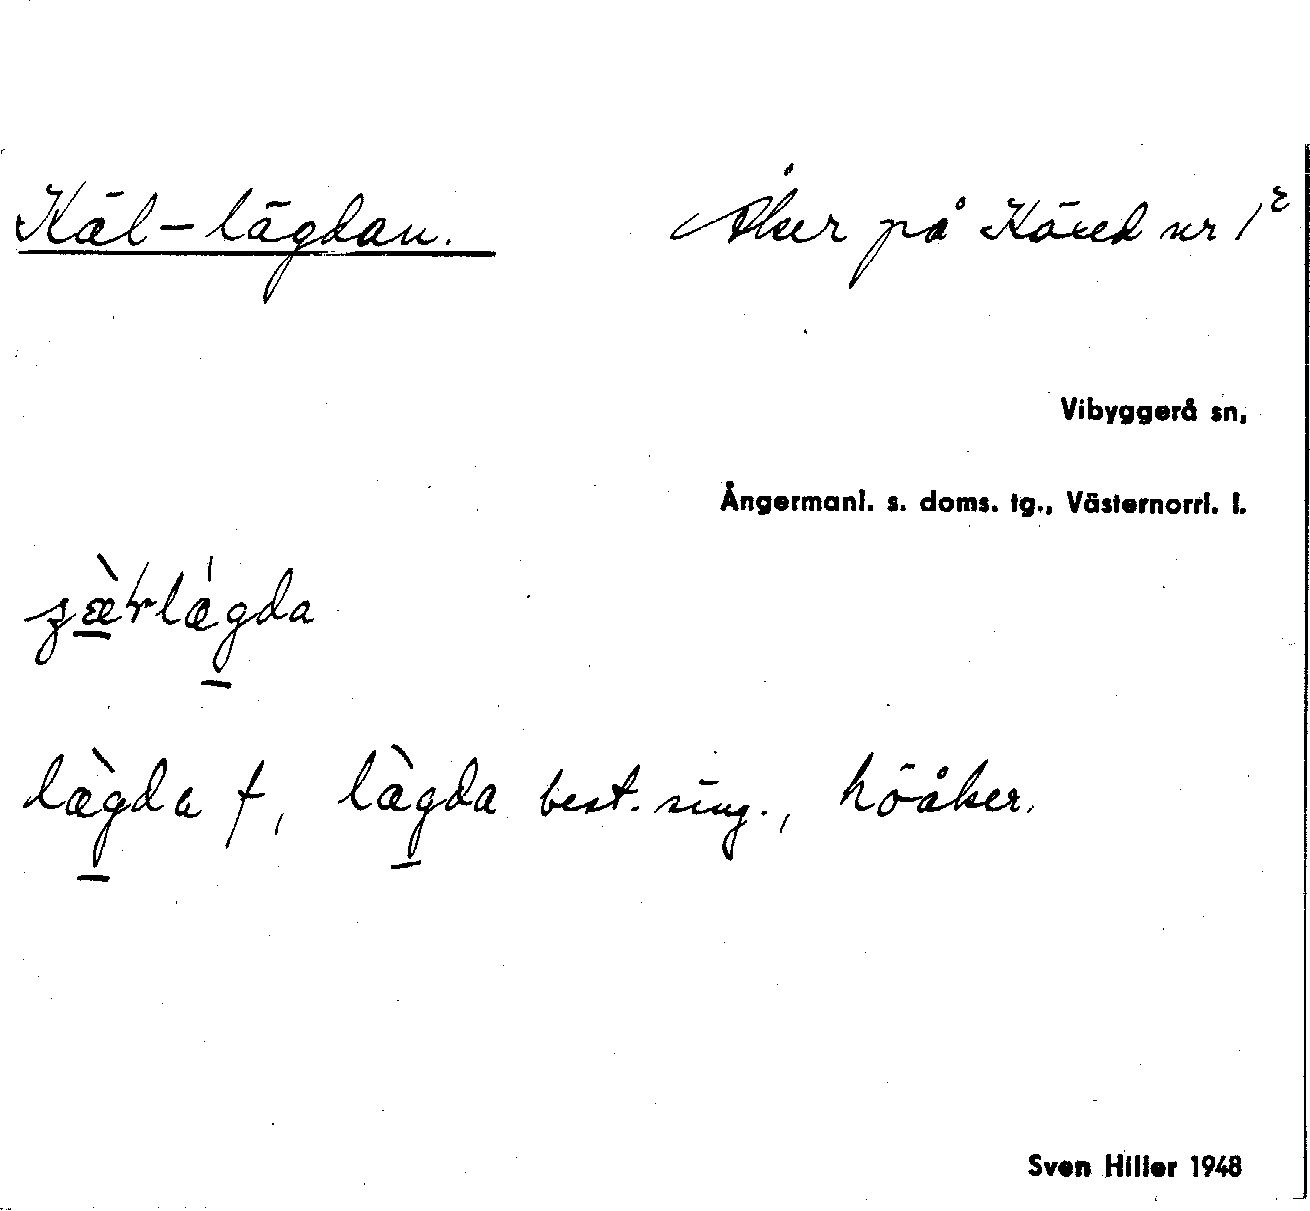 Käl-lägdan. Åker på Köred nr 1²
Vibyggerå sn,
Ångermanl. s. doms. tg., Västernorrl. l.
lægda f, lægda best. sing., höåker.
Sven Hiller 1948